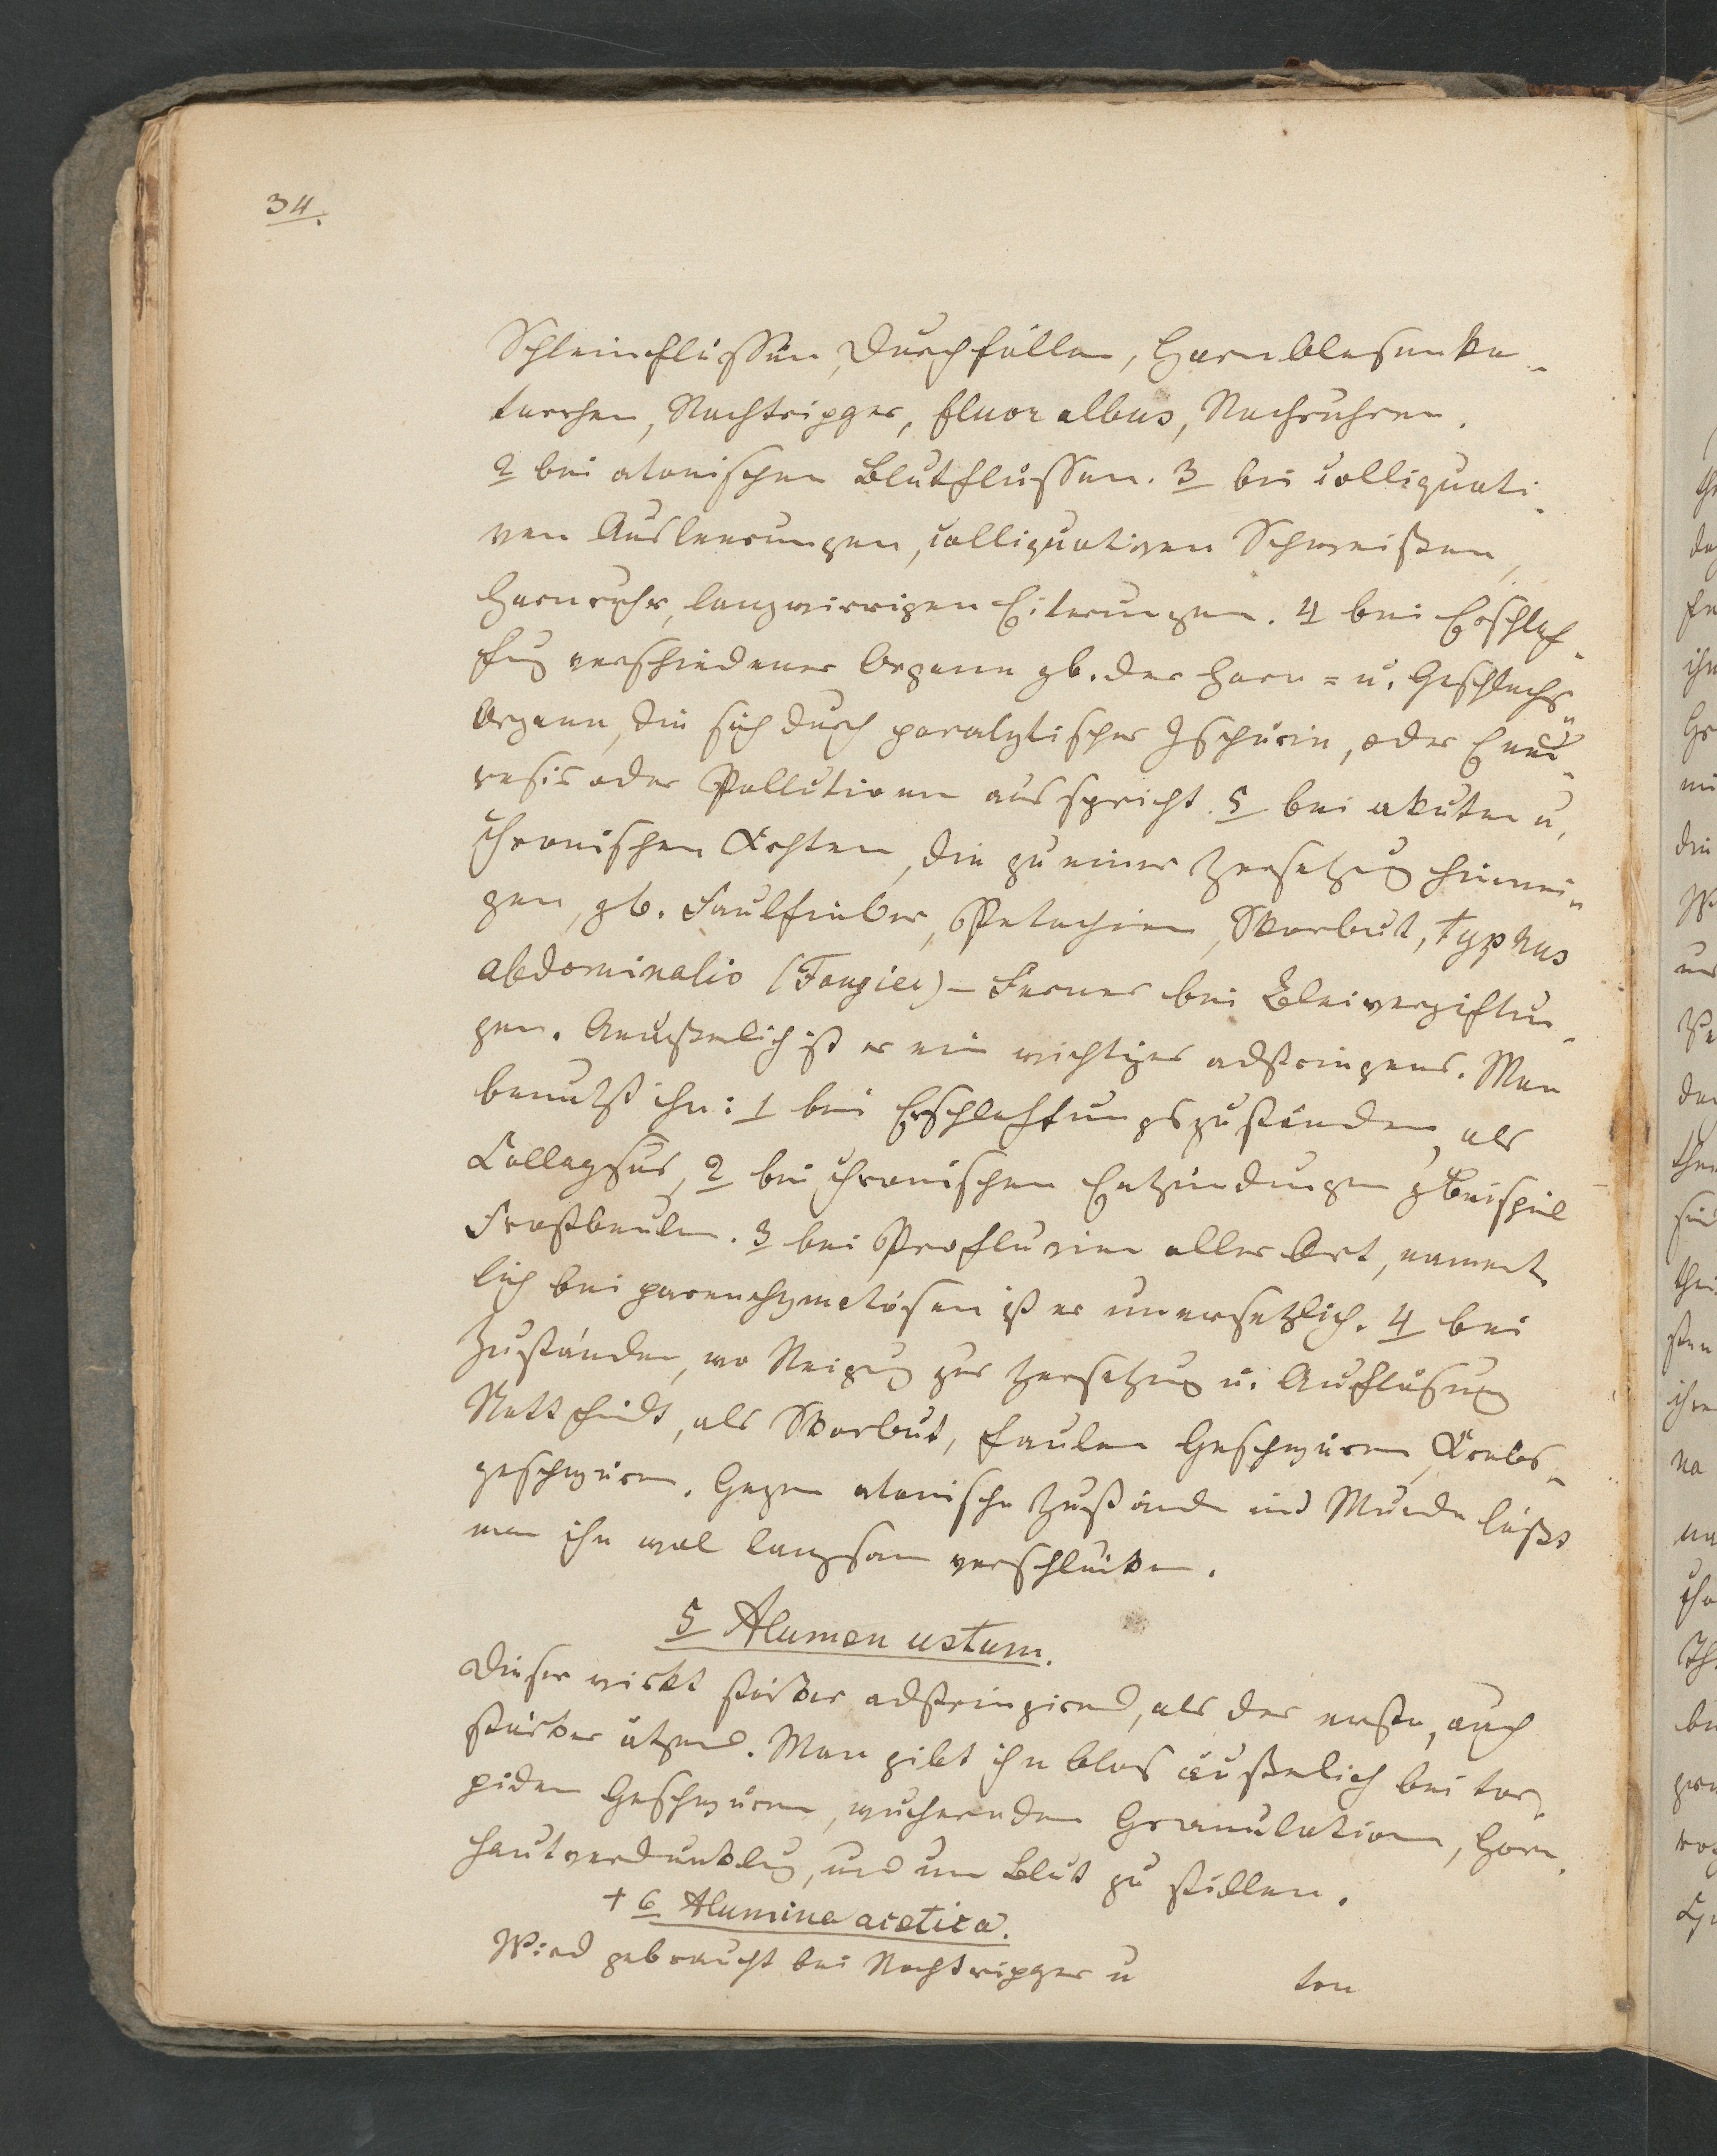 34.
Schleimflüssen, Durchfällen, Harnblasenka-
tarrhen, Nachtripper, fluor albus, Nachruhren.
2 bei atonischen Blutflüssen. 3 bei colliquati-
ven Ausleerungen, colliquativen Schweißen,
Harnruhr, langwierigen Eiterungen. 4 bei Erschlaf-
fug verschiedener Organe zb. der Harn= u. Geschlechts-
Organe, die sich durch paralytischer Ischurie, oder Enu-
resis oder Pollutionen ausspricht. 5 bei akuten u.
chronischen Krkhten, die zu einer Zersetzug hinnei-
gen, zb. Faulfieber, Petechien, Skorbut, Typhus
abdominalis (Fouquier) – Ferner bei Bleivergiftun-
gen. Aeußerlich ist er ein wichtiges adstringens. Man
benutzt ihn: 1 bei Erschlaffungszuständen, als
Collapsus, 2 bei chronischen Entzündungen z Beispiel
Frostbeulen. 3 bei Profluvien aller Art, nament-
lich bei parenchymatösen ist er unersetzlich. 4 bei
Zuständen, wo Neigug zur Zersetzug u. Auflösung
Statt findt, als Skorbut, faulen Geschwüren, Krebs-
geschwüren. Gegen atonische Zustände im Munde läßt
man ihn wol langsam verschlucken.
5 Alumen ustum.
Dieser wirkt stärker adstringirend, als der erste, auch
stärker ätzend. Man gibt ihn blos äußerlich bei tor-
piden Geschwüren, wuchernden Granulationen, Horn-
hautverdunklug, und um Blut zu stillen.
+ 6 Alumina acetica.
Wird gebraucht bei Nachtripper u
ton